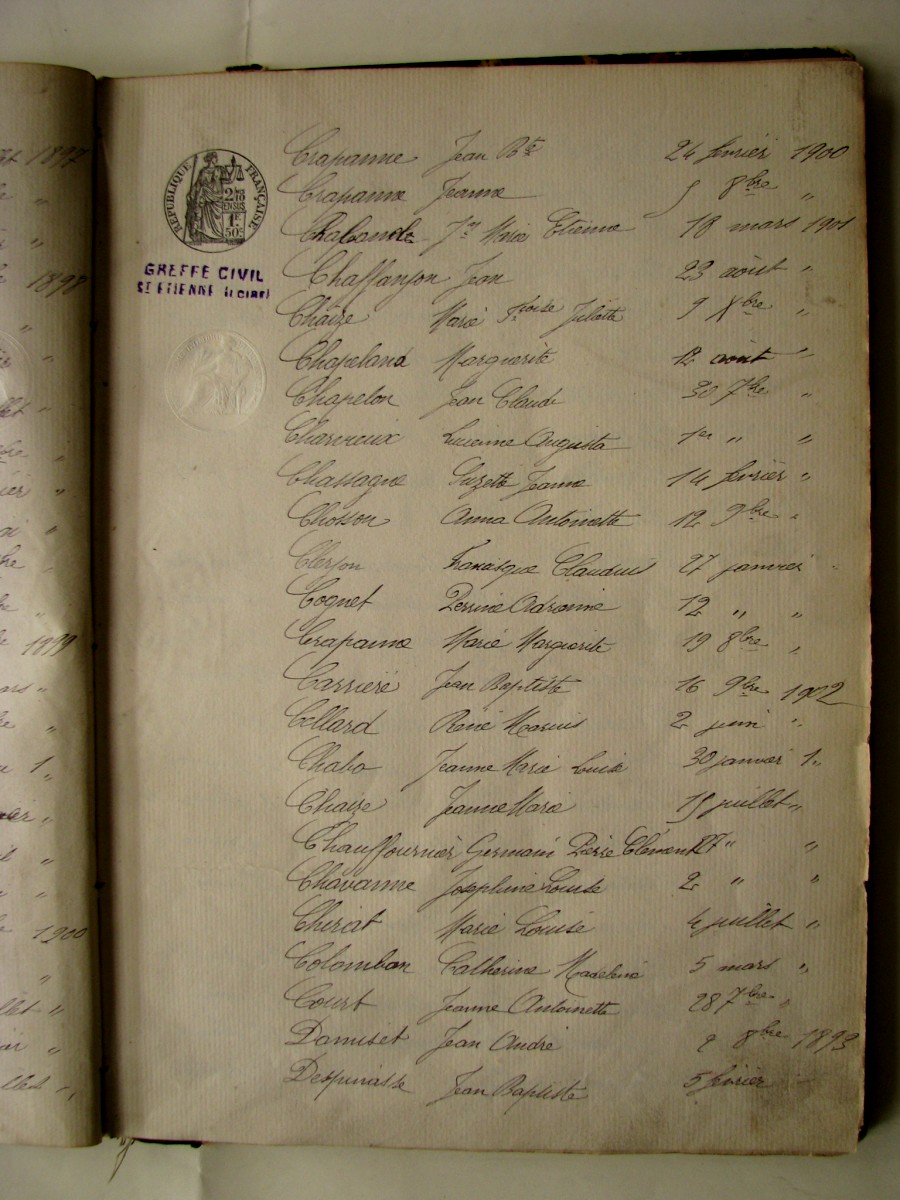 RÉPUBLIQUE FRANÇAISE
2/10 EN SUS
1F.
50c.
GREFFE CIVIL
ST ETIENNE (Loire)
Crapanne Jean Bte 24 février 1900
Crapanne Jeanne 5 8bre "
Marie Etienne 18 mars 1901
Chaffanjon Jean 23 août "
Chaize Marie Fcoise Juliette 9 Xbre "
Chapeland Marguerite 12 août "
Chapelon Jean Claude 30 7bre "
Charvieux Lucienne Augusta 1er " "
Chassagne Suzette Jeanne 14 février "
Chosson Anna Antoinette 12 9bre "
Clerjon Francisque Claudius 27 janvier "
Cognet Perrine 12 " "
Crapanne Marie Marguerite 19 8bre "
Carrière Jean Baptiste 16 9bre 1902
Cellard René Marius 2 juin "
Chabo Jeanne Marie Louise 30 janvier "
Chaize Jeanne Marie 15 juillet "
Chauffournier Germain Pierre Clément 27 " "
Chavanne Joséphine Louise 2 " "
Chirat Marie Louise 4 juillet "
Colomban Catherine Madeleine 5 mars "
Court Jeanne Antoinette 28 7bre "
Damiset Jean André 2 8bre 1893
Despinasse Jean Baptiste 5 février
1897
1898
1899
1900